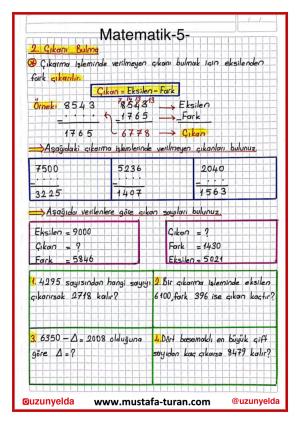 Matematik-5-
2. Çıkanı Bulma
Çıkarma işleminde verilmeyen çıkanı bulmak için eksilenden
fark çıkarılır.
Çıkan = Eksilen - Fark
Örnek: 8543 8543 → Eksilen
- .... - 1765 → Fark
1765 6778 → Çıkan
Aşağıdaki çıkarma işlemlerinde verilmeyen çıkanları bulunuz.
7500 5236 2040
- .... - .... - ....
3225 1407 1563
Aşağıda verilenlere göre çıkan sayıları bulunuz.
Eksilen = 9000 Çıkan = ?
Çıkan = ? Fark = 1430
Fark = 5846 Eksilen = 5021
1. 4295 sayısından hangi sayıyı çıkarırsak 2718 kalır?
2. Bir çıkarma işleminde eksilen 6100, fark 396 ise çıkan kaçtır?
3. 6350 - Δ = 2008 olduğuna göre Δ = ?
4. Dört basamaklı en büyük çift sayıdan kaç çıkarsa 8479 kalır?
@uzunyelda www.mustafa-turan.com @uzunyelda